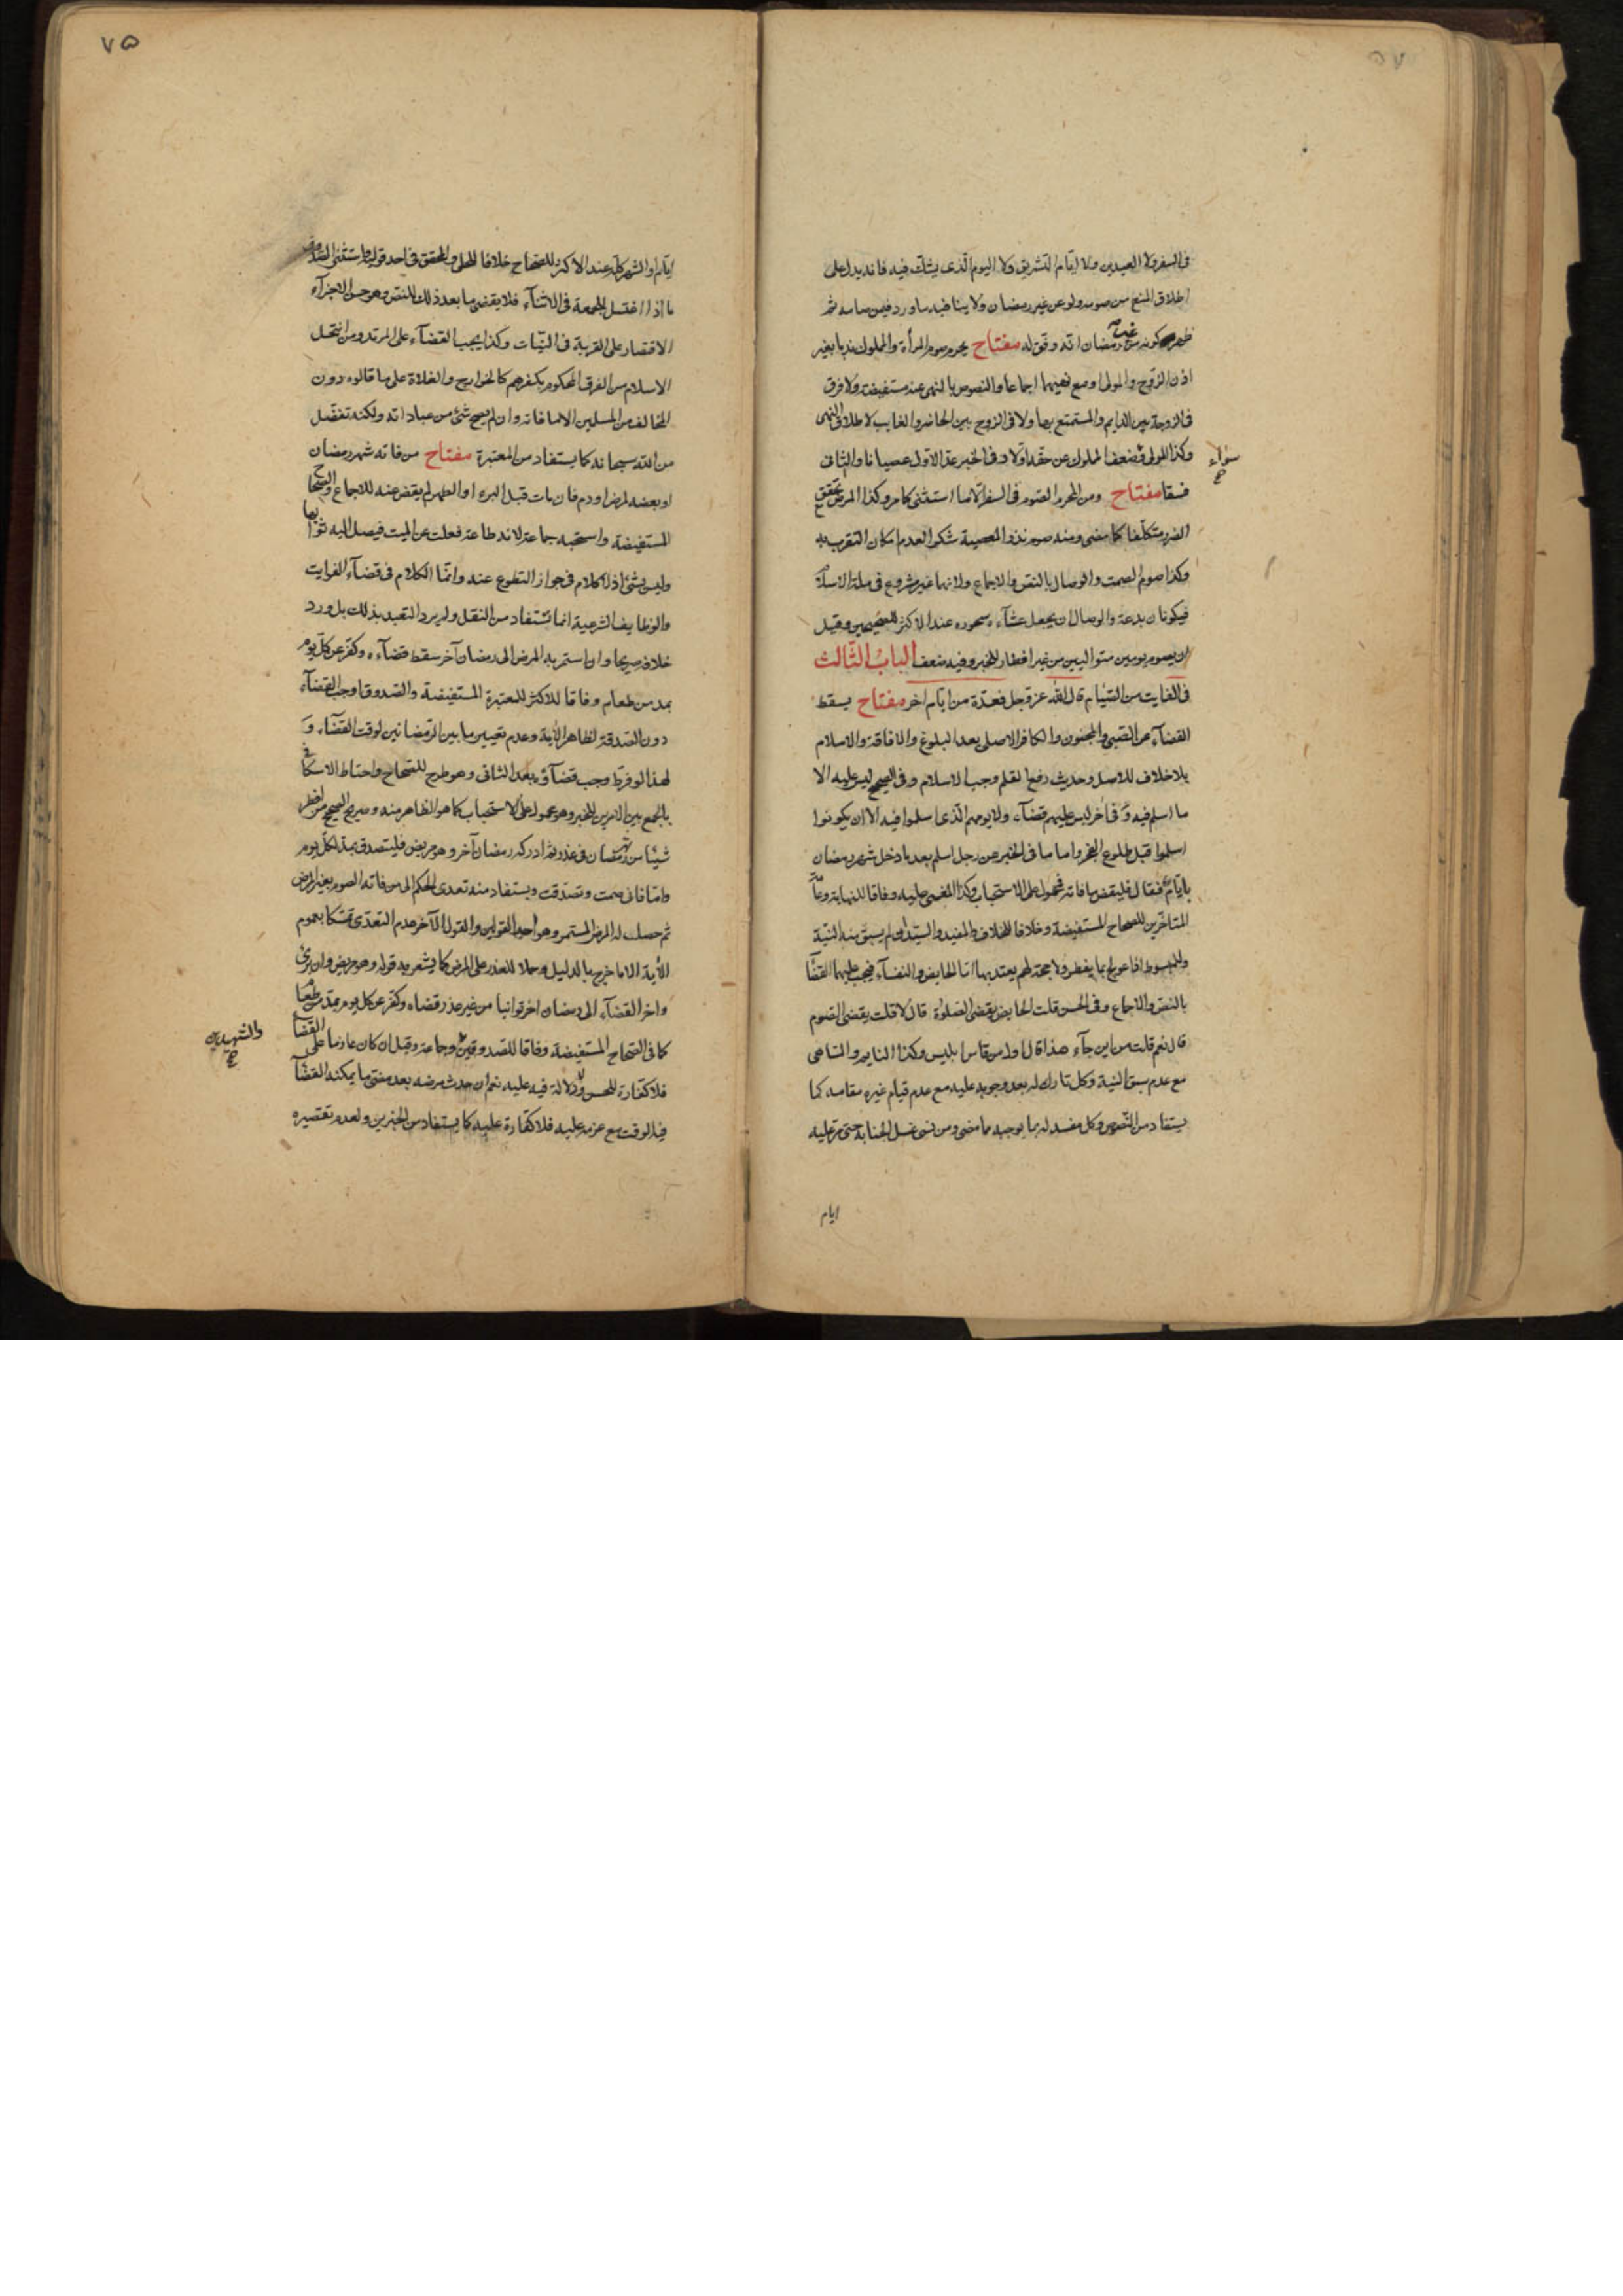 في السفر ولا العيدين ولا ايام التشريق ولا اليوم الذي يشك فيه فانه يدل على
اطلاق المنع من صومه ولو عن غير رمضان ولا ينافيه ما ورد فيمن صامه ثم
ظهر كونه من رمضان انه وفق له مفتاح يحرم صوم المرأة والمملوك ندبا بغير
اذن الزوج والمولى او مع نهيهما اجماعا والنصوص بالنهي عنه مستفيضة ولا فرق
في الزوجة بين الدايم والمستمتع بها ولا في الزوج بين الحاضر والغايب لاطلاق النهي
وكذا المولى ضعف المملوك عن حقه اولا وفي الخبر عد الاول عصيانا والثاني
سواء
صح
فسقا مفتاح ومن المحرم الصوم في السفر الا ما استثنى كما مر وكذا المرض مع تحقق
الضرر متكلفا كما مضى ومنه صوم نذر المعصية شكرا لعدم امكان التقرب به
وكذا صوم الصمت والوصال بالنص والاجماع ولانهما غير مشروع في ملة الاسلام
فيكونان بدعة والوصال ان يجعل عشاءه سحوره عند الاكثر للصحيحين وقيل
ان يصوم يومين متواليين من غير افطار للخبر وفيه ضعف الباب الثالث
في الفايت من الصيام قال الله عز وجل فعدة من ايام اخر مفتاح يسقط
القضاء عن الصبي والمجنون والكافر الاصلي بعد البلوغ والافاقة والاسلام
بلا خلاف للاصل وحديث رفع القلم وجب الاسلام وفي الصحيح ليس عليه الا
ما اسلم فيه وفي اخر ليس عليهم قضاء ولا يومهم الذي اسلموا فيه الا ان يكونوا
اسلموا قبل طلوع الفجر واما ما في الخبر عن رجل اسلم بعد ما دخل شهر رمضان
بايام فقال فليقض ما فاته فمحمول على الاستحباب وكذا المغمى عليه وفاقا للنهاية وعامة
المتاخرين للصحاح المستفيضة وخلافا للخلاف والمفيد والسيد ان لم يسبق منه النية
وللمبسوط اذا عولج بما يفطر ولا حجة لهم يعتد بها اما الحايض والنفساء فيجب عليهما القضاء
بالنص والاجماع وفي الحسن قلت الحايض يقضي الصلوة قال لا قلت يقضي الصوم
قال نعم قلت من اين جاء هذا قال اول من قاس ابليس وكذا النايم والساهي
مع عدم سبق النية وكل تارك له بعد وجوبه عليه مع عدم قيام غيره مقامه كما
يستفاد من النصوص وكل مفسد له بما يوجبه مما مضى ومن نسى غسل الجنابة حتى مر عليه
ايام
٧٥
ايام او الشهر كله عند الاكثر للصحاح خلافا للحلي والمحقق في احد قوليه واستثنى الصدوق
ما اذا اغتسل للجمعة في الاثناء فلا يقضي ما بعد ذلك للنص وهو حسن لاجزاء
الاقتصار على القربة في النيات وكذا يجب القضاء على المرتد ومن انتحل
الاسلام من الفرق المحكوم بكفرهم كالخوارج والغلاة على ما قالوه دون
المخالف من المسلمين الا ما فاته وان لم يصح شئ من عباداته ولكنه تفضل
من الله سبحانه كما يستفاد من المعتبرة مفتاح من فاته شهر رمضان
او بعضه لمرض او دم فان مات قبل البرء او الطهر لم يقض عنه للاجماع والصحاح
المستفيضة واستحبه جماعة لانه طاعة فعلت عن الميت فيصل اليه ثوابها
وليس بشئ اذ لا كلام في جواز التطوع عنه وانما الكلام في قضاء الفوايت
والوظايف الشرعية انما تستفاد من النقل ولم يرد التعبد بذلك بل ورد
خلافه صريحا وان استمر به المرض الى رمضان آخر سقط قضاءه وكفر عن كل يوم
بمد من طعام وفاقا للاكثر للمعتبرة المستفيضة والصدوق اوجب القضاء
دون الصدقة لظاهر الآية وعدم تعيين ما بين الرمضانين لوقت القضاء و
لهذا لو فرط وجب قضاؤه بعد الثاني وهو طرح للصحاح واحتاط الاسكافي
بالجمع بين الامرين للخبر وهو محمول على الاستحباب كما هو الظاهر منه وصريح الصحيح من افطر
شيئا من رمضان في عذر ثم ادركه رمضان آخر وهو مريض فليتصدق بمد لكل يوم
واما انا فاني صمت وتصدقت ويستفاد منه تعدى الحكم الى من فاته الصوم بغير المرض
ثم حصلت له المرض المستمر وهو احد القولين والقول الآخر عدم التعدى تمسكا بعموم
الآية الا ما خرج بالدليل وحملا للعذر على المرض كما يشعر به قوله وهو مريض وان برئ
واخر القضاء الى رمضان اخر توانيا من غير عذر قضاه وكفر عن كل يوم بمد من طعام
كما في الصحاح المستفيضة وفاقا للصدوقين وجماعة وقيل ان كان عازما على القضاء
والشهيدين
صح
فلا كفارة للحسن ولا دلالة فيه عليه نعم ان حدث مرضه بعد مضي ما يمكنه القضاء
فيه الوقت مع عزمه عليه فلا كفارة عليه كما يستفاد من الخبرين ولعدم تقصيره